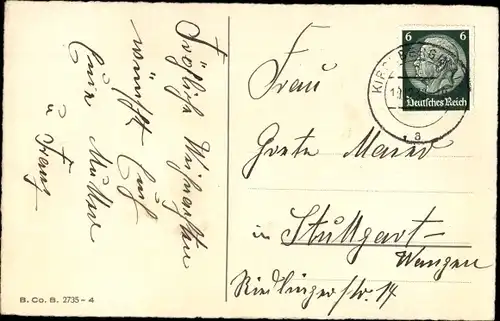 Fröhliche Weihnachten
wünscht Euch
Eure Mutter
u Franz
B. Co. B. 2735 - 4
6 6
Deutsches Reich
a
Frau
Grete Maier
in Stuttgart-
Wangen
Riedlingerstr. 14